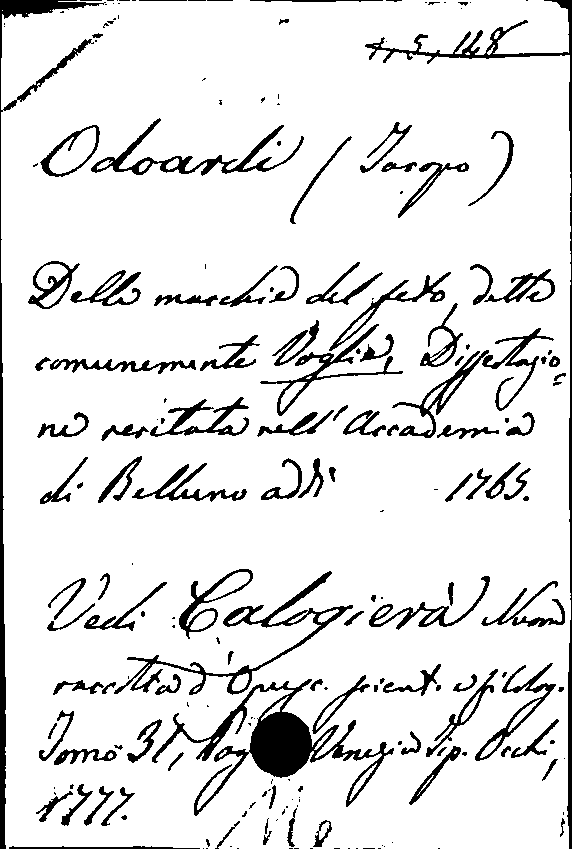 1, 5, 148
Odoardi (Jacopo)
Delle macchie del feto, dette
comunemente Voglie, Dissertazio=
ne recitata nell' Accademia
di Belluno addì 1765.
Vedi Calogierà Nuova
raccolta d'Opusc. scient. e filolog.
Tomo 31, Pag Venezia Tip. Occhi,
1777.